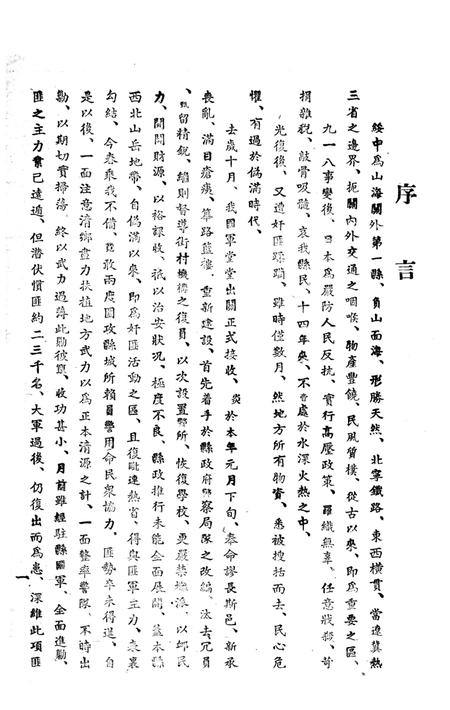 序言
綏中為山海關外第一縣、負山面海、形勝天然、北寧鐵路、東西橫貫、當遼冀熱
三省之邊界、扼關內外交通之咽喉、物產豐饒、民風質樸、從古以來、即為重要之區、
九一八事變後、日本為嚴防人民反抗、實行高壓政策、羅織無辜、任意戕殺、苛
捐雜稅、敲骨吸髓、哀我縣民、十四年來、不啻處於水深火熱之中、
光復後、又遭奸匪蹂躪、雖時僅數月、然地方所有物資、悉被搜括而去、民心危
懼、有過於偽滿時代、
去歲十月、我國軍堂堂出關正式接收、炎於本年元月下旬、奉命謬長斯邑、新承
喪亂、滿目瘡痍、篳路藍縷、重新建設、首先着手於縣政府警察局隊之改編、汰去冗員
、甄留精銳、繼則督導街村機構之復員、以次設置鄉所、恢復學校、更嚴禁攤派、以卹民
力、開闢財源、以裕課收、祇以治安狀況、極度不良、縣政推行未能全面展開、蓋本縣
西北山岳地帶、自偽滿以來、即為奸匪活動之區、且復毗連熱省、得與匪軍主力、表裏
勾結、今春乘我不備、竟敢兩度圍攻縣城所賴員警用命民衆協力、匪勢卒未得逞、自
是以後、一面注意清鄉盡力扶植地方武力以為正本清源之計、一面整率警隊、不時出
勦、以期切實掃蕩、終以武力過薄此勦彼竄、收功甚小、月前雖經駐縣國軍、全面進勦、
匪之主力業已遠遁、但潛伏慣匪約二三千名、大軍過後、仍復出而為患、深維此項匪
一